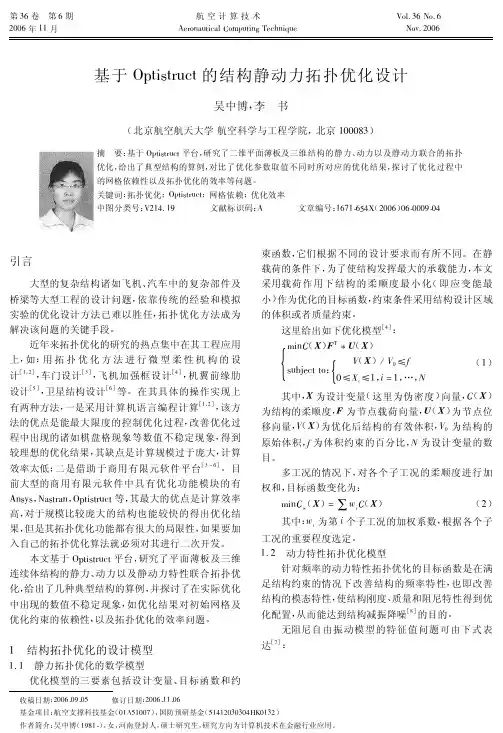 第36卷 第6期
2006年11月
航空计算技术
Aeronautical Computing Technique
Vol. 36 No. 6
Nov. 2006
基于Optistruct的结构静动力拓扑优化设计
吴中博,李 书
(北京航空航天大学 航空科学与工程学院,北京 100083)
摘 要:基于Optistruct平台,研究了二维平面薄板及三维结构的静力、动力以及静动力联合的拓扑
优化,给出了典型结构的算例,对比了优化参数取值不同时所对应的优化结果,探讨了优化过程中
的网格依赖性以及拓扑优化的效率等问题。
关键词:拓扑优化; Optistruct; 网格依赖; 优化效率
中图分类号: V214.19 文献标识码:A 文章编号:1671-654X(2006)06-0009-04
引言
大型的复杂结构诸如飞机、汽车中的复杂部件及
桥梁等大型工程的设计问题,依靠传统的经验和模拟
实验的优化设计方法已难以胜任,拓扑优化方法成为
解决该问题的关键手段。
近年来拓扑优化的研究的热点集中在其工程应用
上,如:用拓扑优化方法进行微型柔性机构的设
计[1,2],车门设计[3],飞机加强框设计[4],机翼前缘肋
设计[5],卫星结构设计[6]等。在其具体的操作实现上
有两种方法,一是采用计算机语言编程计算[1,2],该方
法的优点是能最大限度的控制优化过程,改善优化过
程中出现的诸如棋盘格现象等数值不稳定现象,得到
较理想的优化结果,其缺点是计算规模过于庞大,计算
效率太低;二是借助于商用有限元软件平台[3-6]。目
前大型的商用有限元软件中具有优化功能模块的有
Ansys,Nastran,Optistruct等,其最大的优点是计算效率
高,对于规模比较庞大的结构也能较快的得出优化结
果,但是其拓扑优化功能都有很大的局限性,如果要加
入自己的拓扑优化算法就必须对其进行二次开发。
本文基于Optistruct平台,研究了平面薄板及三维
连续体结构的静力、动力以及静动力特性联合拓扑优
化,给出了几种典型结构的算例,并探讨了在实际优化
中出现的数值不稳定现象,如优化结果对初始网格及
优化约束的依赖性,以及拓扑优化的效率问题。
1 结构拓扑优化的设计模型
1.1 静力拓扑优化的数学模型
优化模型的三要素包括设计变量、目标函数和约
束函数,它们根据不同的设计要求而有所不同。在静
载荷的条件下,为了使结构发挥最大的承载能力,本文
采用载荷作用下结构的柔顺度最小化(即应变能最
小)作为优化的目标函数,约束条件采用结构设计区域
的体积或者质量约束。
这里给出如下优化模型[4]:
minC(X)F^T * U(X)
sthject to: V(X) / V₀ ≤ f
0≤Xᵢ≤1, i = 1, …, N (1)
其中,X为设计变量(这里为伪密度)向量,C(X)
为结构的柔顺度,F为节点载荷向量,U(X)为节点位
移向量,V(X)为优化后结构的有效体积,V₀为结构的
原始体积,f为体积约束的百分比,N为设计变量的数
目。
多工况的情况下,对各个子工况的柔顺度进行加
权和,目标函数变化为:
minCw(X) = ∑ wᵢC(X) (2)
其中:wᵢ为第i个子工况的加权系数,根据各个子
工况的重要程度选定。
1.2 动力特性拓扑优化模型
针对频率的动力特性拓扑优化的目标函数是在满
足结构约束的情况下改善结构的频率特性,也即改善
结构的模态特性,使结构刚度、质量和阻尼特性得到优
化配置,从而能达到结构减振降噪[8]的目的。
无阻尼自由振动模型的特征值问题可由下式表
达[7]:
收稿日期:2006.09.05 修订日期:2006.11.06
基金项目:航空支撑科技基金(01A51007),国防预研基金(51412030304HK0132)
作者简介:吴中博(1981-),女,河南登封人,硕士研究生,研究方向为计算机技术在金融行业应用。